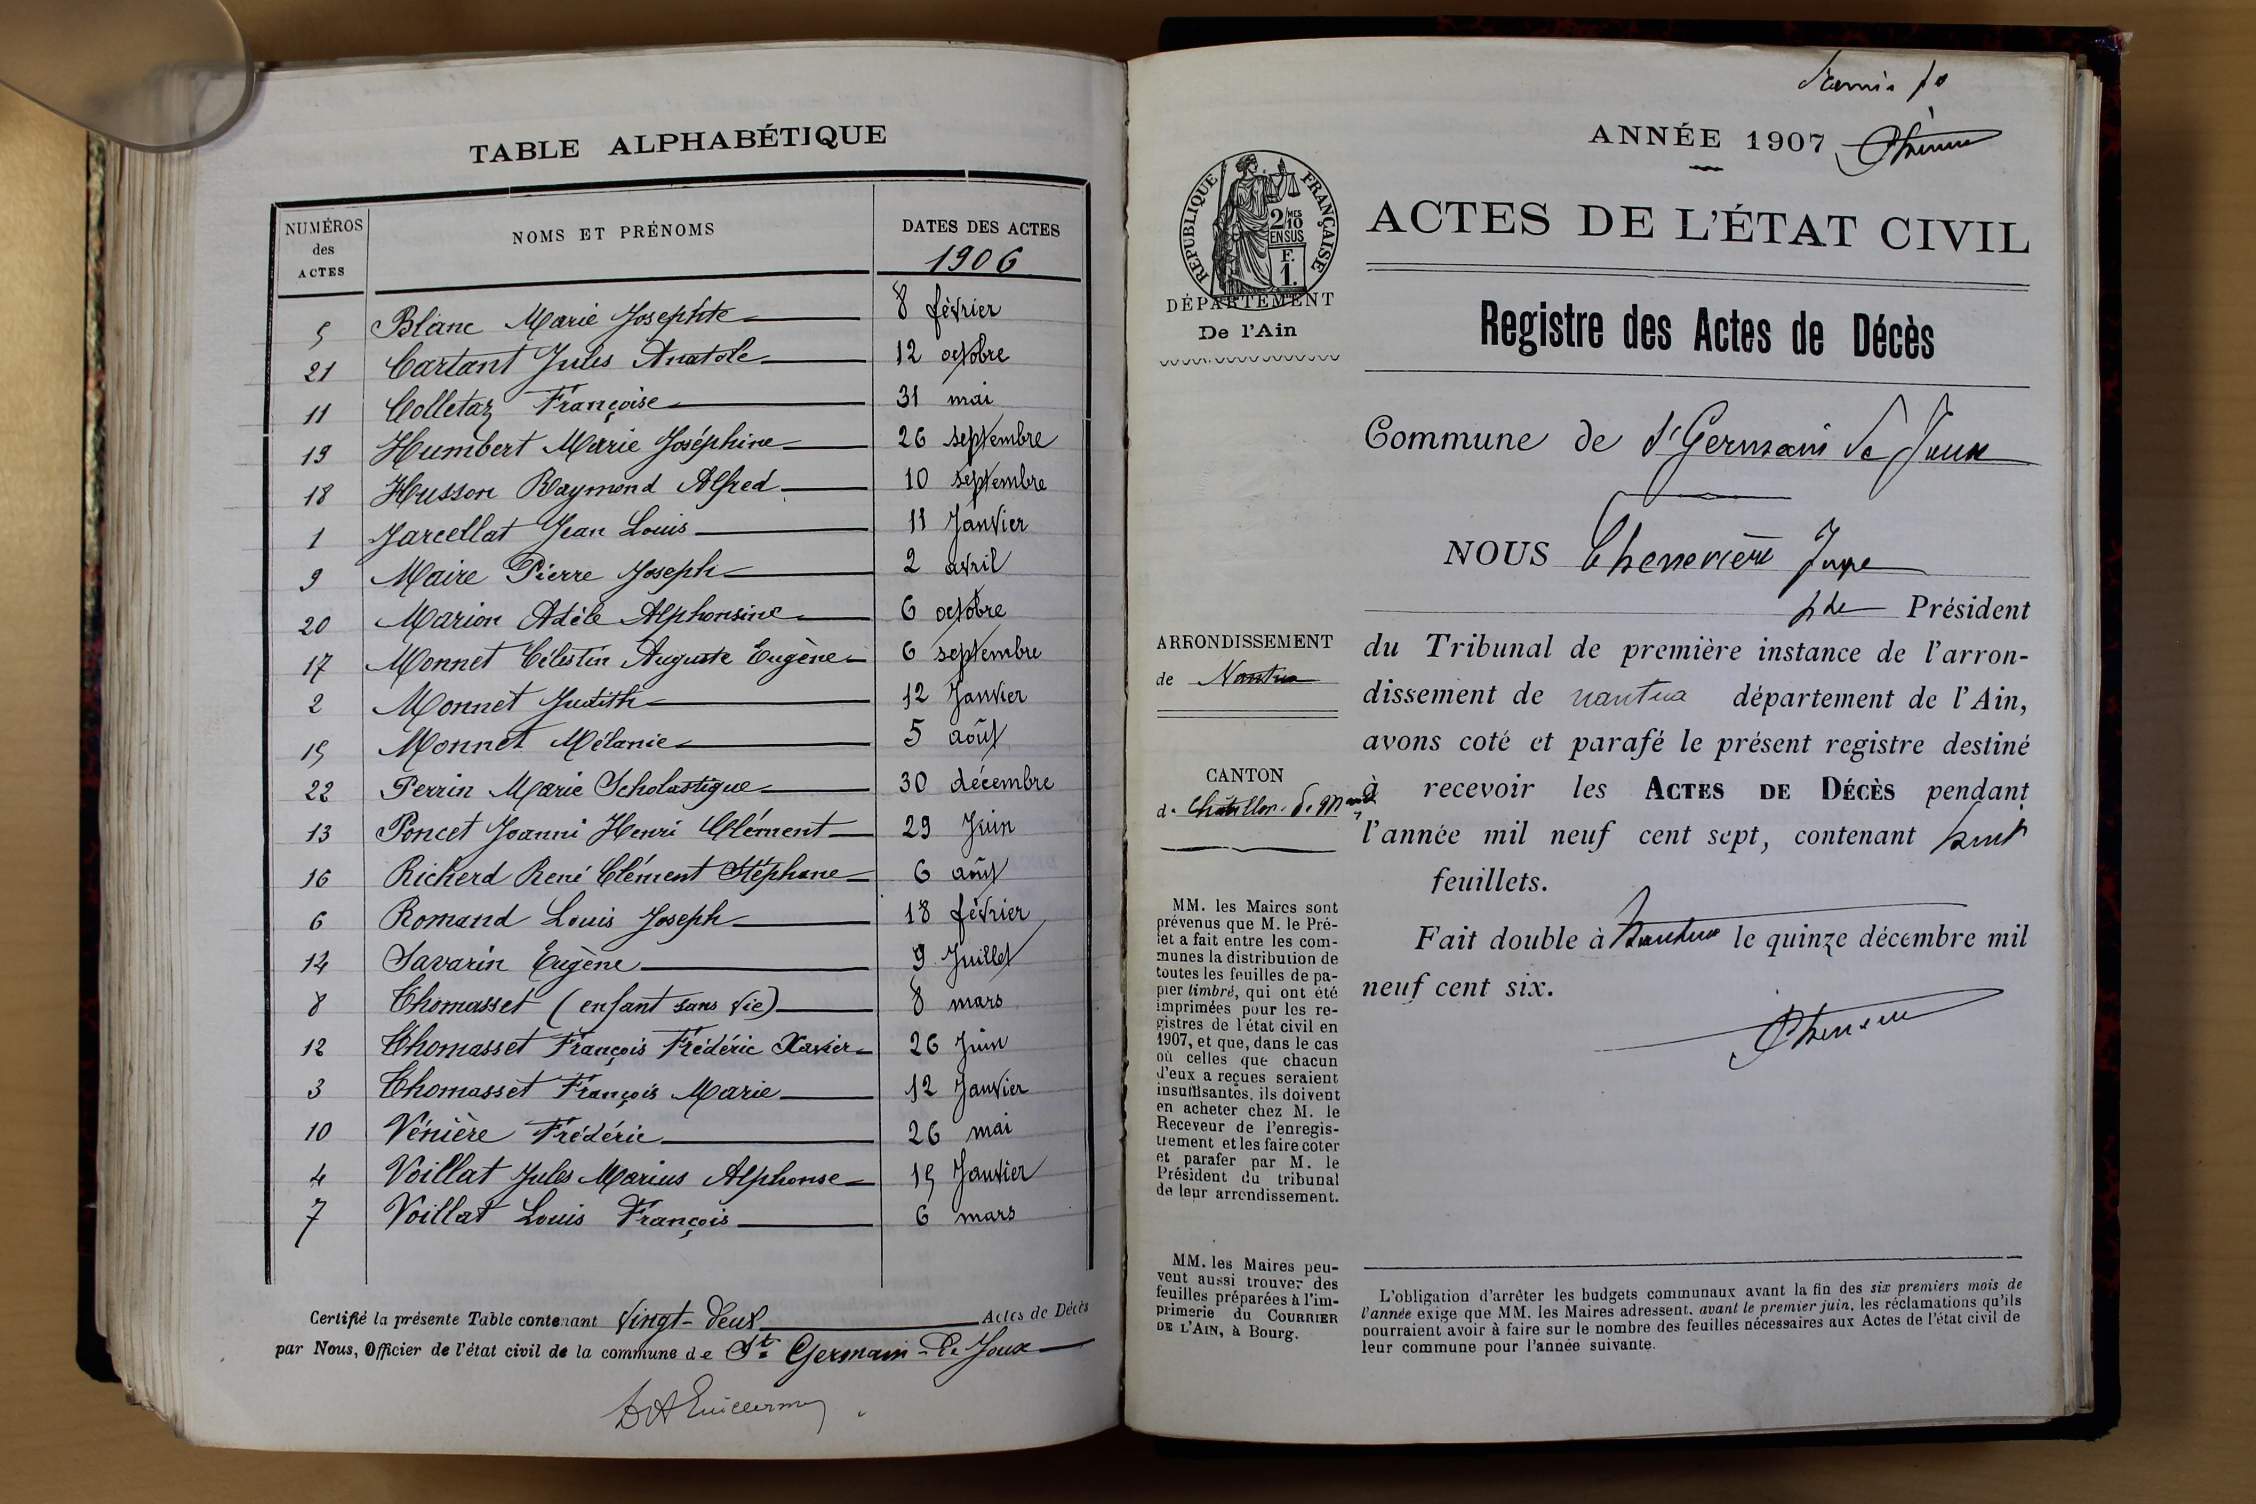 TABLE ALPHABÉTIQUE
NUMÉROS des ACTES
NOMS ET PRÉNOMS
DATES DES ACTES
1906
5 Blanc Marie Josephte 8 février
21 Cartant Jules Anatole 12 octobre
11 Colletaz Françoise 31 mai
19 Humbert Marie Joséphine 26 septembre
18 Husson Raymond Alfred 10 septembre
1 Jarcellat Jean Louis 11 Janvier
9 Maire Pierre Joseph 2 avril
20 Marion Adèle Alphonsine 6 octobre
17 Monnet Célestin Auguste Eugène 6 septembre
2 Monnet Judith 12 Janvier
15 Monnet Mélanie 5 août
22 Perrin Marie Scholastique 30 décembre
13 Poncet Joanni Henri Clément 29 Juin
16 Richerd René Clément Stéphane 6 août
6 Romand Louis Joseph 18 février
14 Savarin Eugène 9 Juillet
8 Thomasset (enfant sans vie) 8 mars
12 Thomasset François Frédéric Xavier 26 Juin
3 Thomasset François Marie 12 Janvier
10 Vénière Frédéric 26 mai
4 Voillat Jules Marius Alphonse 15 Janvier
7 Voillat Louis François 6 mars
Certifié la présente Table contenant Vingt-deux Actes de Décès
par Nous, Officier de l'état civil de la commune de St Germain-de-Joux
ANNÉE 1907
RÉPUBLIQUE FRANÇAISE
2/10MES
EN SUS
F.
1.
ACTES DE L'ÉTAT CIVIL
DÉPARTEMENT
De l'Ain
Registre des Actes de Décès
Commune de St Germain de Joux
NOUS Chenevière Juge
Président
ARRONDISSEMENT
de Nantua
du Tribunal de première instance de l'arron-
dissement de nantua département de l'Ain,
avons coté et parafé le présent registre destiné
CANTON
de Chatillon-de-M
à recevoir les ACTES DE DÉCÈS pendant
l'année mil neuf cent sept, contenant
feuillets.
Fait double à Nantua le quinze décembre mil
neuf cent six.
MM. les Maires sont
prévenus que M. le Pré-
fet a fait entre les com-
munes la distribution de
toutes les feuilles de pa-
pier timbré, qui ont été
imprimées pour les re-
gistres de l'état civil en
1907, et que, dans le cas
où celles que chacun
d'eux a reçues seraient
insuffisantes, ils doivent
en acheter chez M. le
Receveur de l'enregis-
trement et les faire coter
et parafer par M. le
Président du tribunal
de leur arrondissement.
MM. les Maires peu-
vent aussi trouver des
feuilles préparées à l'im-
primerie du COURRIER
DE L'AIN, à Bourg.
L'obligation d'arrêter les budgets communaux avant la fin des six premiers mois de
l'année exige que MM. les Maires adressent, avant le premier juin, les réclamations qu'ils
pourraient avoir à faire sur le nombre des feuilles nécessaires aux Actes de l'état civil de
leur commune pour l'année suivante.